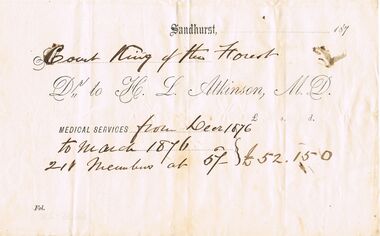 Sandhurst, 187
Court King of the Forest
Dr. to H. L. Atkinson, M. D.
£ s. d.
MEDICAL SERVICES from Decr 1876
to March 1876
211 Members at 5/- } £52.15.0
Fol.